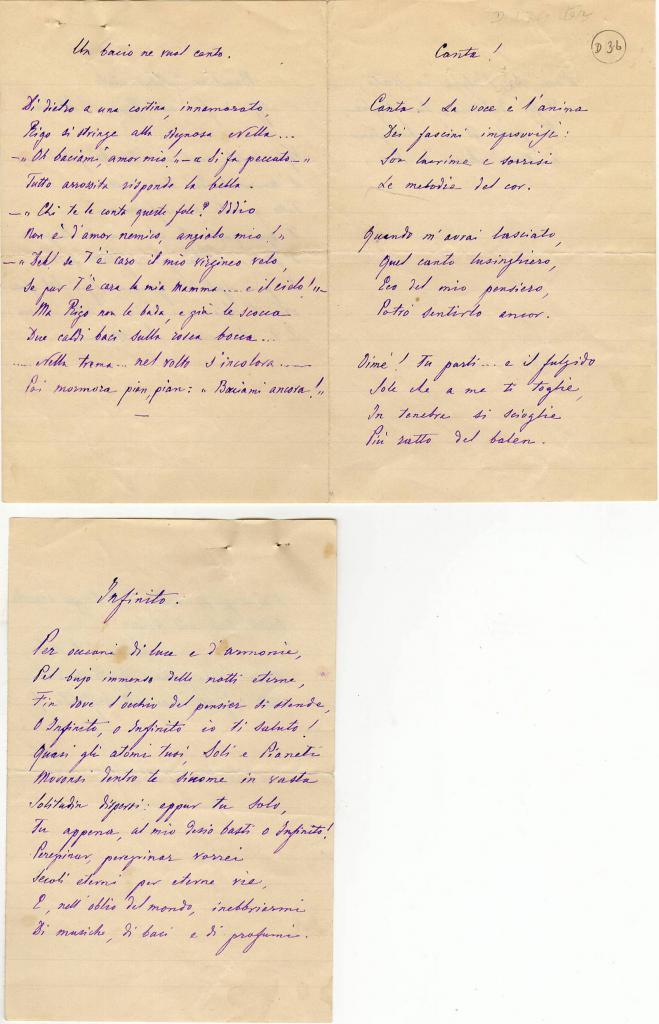 Un bacio ne vual cento.
Di dietro a una cortina, innamorato,
Rigo si stringe alla sdegnosa Nella...
—"Oh baciami, amor mio!"—"Si fa peccato—"
Tutto arrossita risponde la bella.
—"Chi te le conta queste fole? Iddio
Non è d'amor nemico, angiolo mio!"
—"Deh! se T'è caro il mio virgineo velo,
Se pur T'è cara la mia mamma... e il cielo!"—
Ma Rigo non le bada, e già le scocca
Due caldi baci sulla rosea bocca...
.... Nella trema... nel volto s'incolora....
Poi mormora pian, pian: "Baciami ancora!"
D 36
Canta!
Canta! La voce è l'anima
Dei fascini improvvisi:
Son lacrime e sorrisi
Le melodie del cor.
Quando m'avrai lasciato,
Quel canto lusinghiero,
Eco del mio pensiero,
Potrò sentirlo ancor.
Oimé! Tu parti... e il fulgido
Sole che a me ti toglie,
In tenebre si scioglie
Più ratto del balen.
Infinito.
Per oceani di luce e d'armonie,
Pel bujo immenso delle notti eterne,
Fin dove l'occhio del pensier si stende,
O Infinito, o Infinito io ti saluto!
Quasi gli atomi tuoi, Soli e Pianeti
Movonsi dentro te siccome in vasta
Solitudin dispersi: eppur tu solo,
Tu appena, al mio desio basti o Infinito!
Peregrinar, peregrinar vorrei
Secoli eterni per eterne vie,
E, nell'oblio del mondo, inebbriarmi
Di musiche, di baci e di profumi.